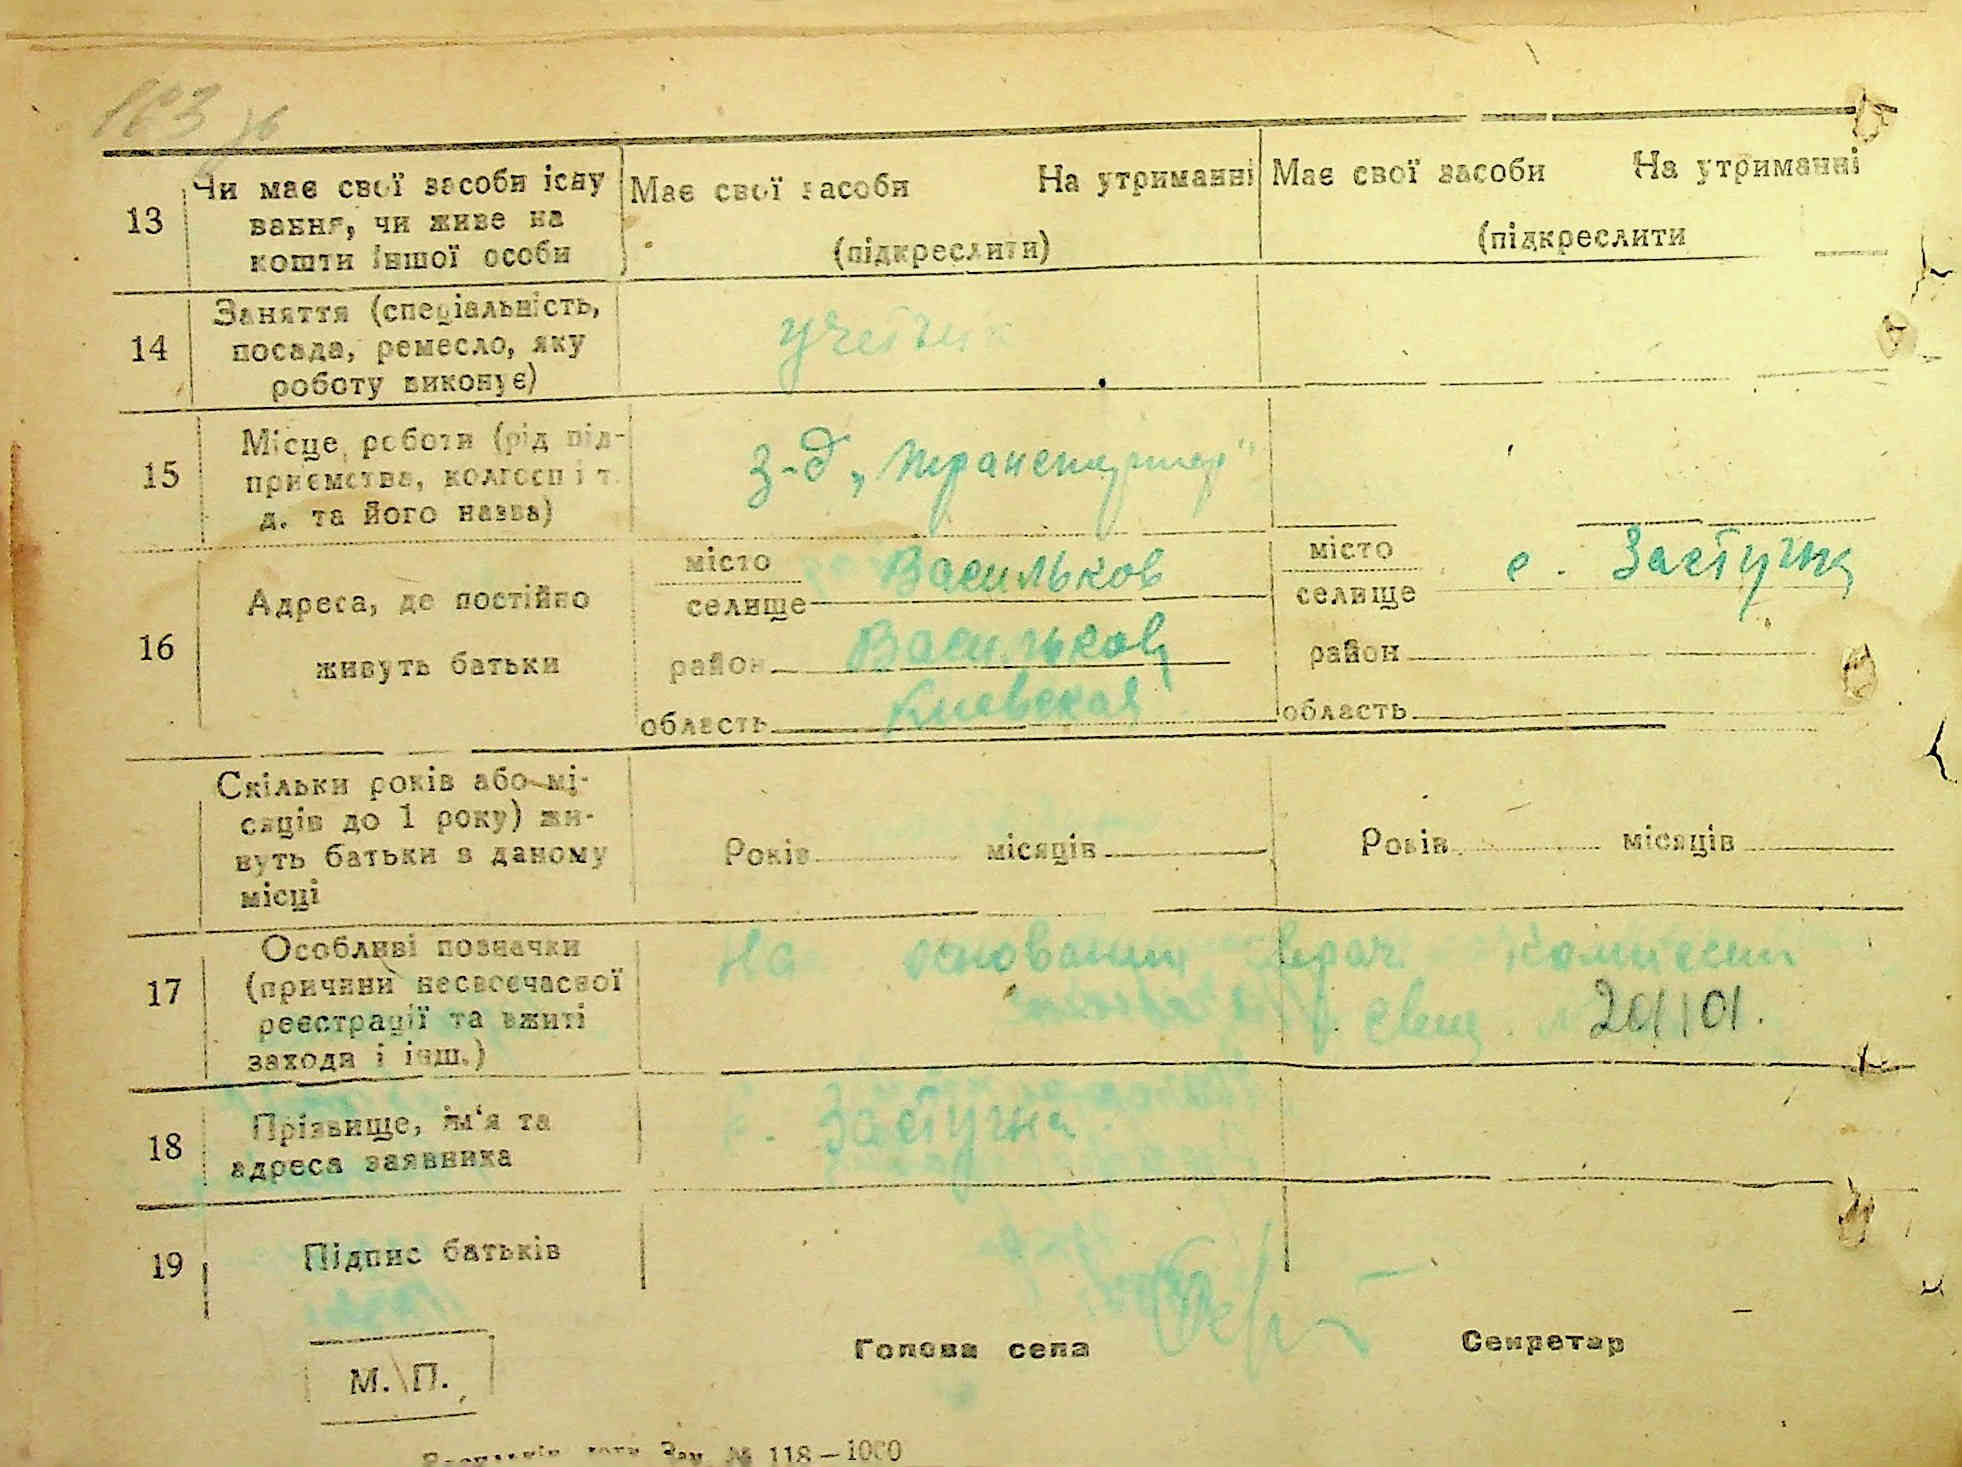 163
13 Чи має свої засоби існу
вання, чи живе на
кошти іншої особи
Має свої засоби На утриманні
(підкреслити)
Має свої засоби На утриманні
(підкреслити
14 Заняття (спеціальність,
посада, ремесло, яку
роботу виконує)
учетчик
15 Місце роботи (рід під-
приємства, колгосп і т.
д. та його назва)
з-д „Транспортер"
16 Адреса, де постійно
живуть батьки
місто Васильков
селище
район Васильков
область Киевская
місто с. Застугна
селище
район
область
Скільки років або мі-
сяців до 1 року) жи-
вуть батьки в даному
місці
Років місяців
Років місяців
17 Особливі позначки
(причини несвоєчасної
реєстрації та вжиті
заходи і інш.)
На основании врач. комиссии
свид. 201101.
18 Прізвище, ім'я та
адреса заявника
с. Застугна
19 Підпис батьків
М. П.
Голова села Секретар
Зам. № 118—1000